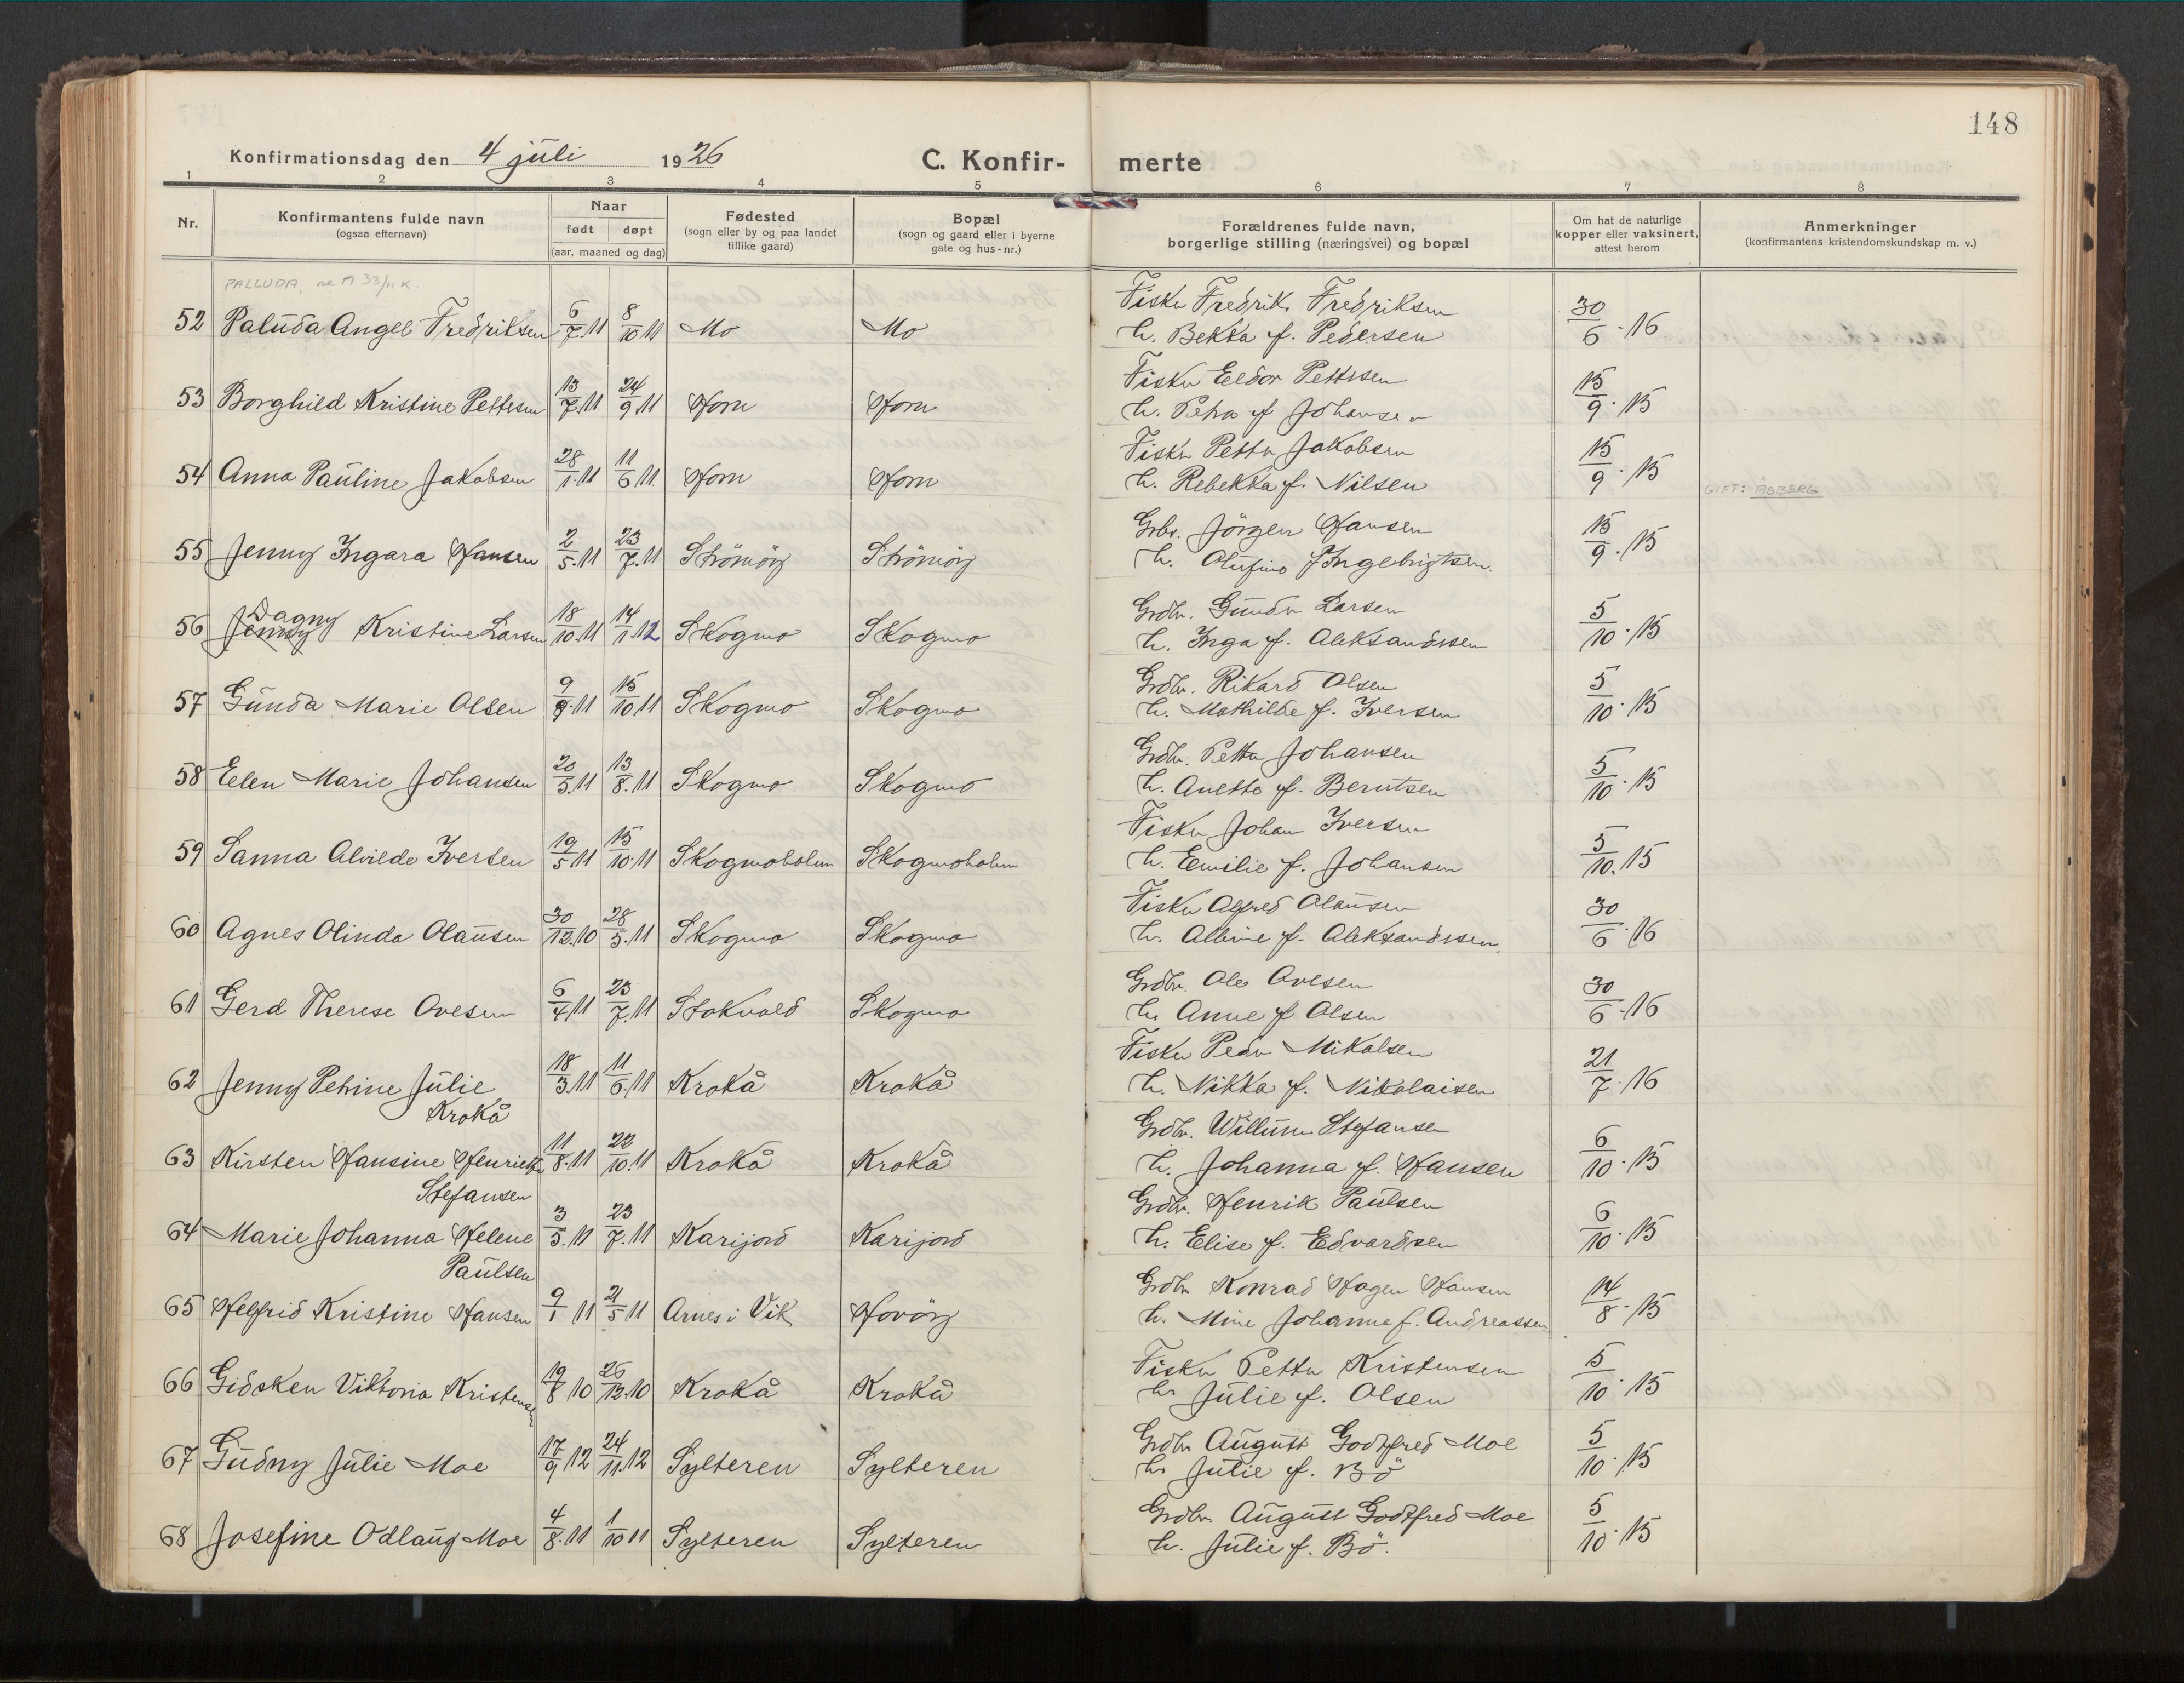 148
Konfirmationsdag den 4 juli 1926 C. Konfirmerte
1 2 3 4 5 6 7 8
Nr.
Konfirmantens fulde navn
(ogsaa efternavn)
Naar
født døpt
(aar, maaned og dag)
Fødested
(sogn eller by og paa landet
tillike gaard)
Bopæl
(sogn og gaard eller i byerne
gate og hus-nr.)
Forældrenes fulde navn,
borgerlige stilling (næringsvei) og bopæl
Om hat de naturlige
kopper eller vaksinert,
attest herom
Anmerkninger
(konfirmantens kristendomskundskap m. v.)
PALLUDA, 33/11 K.
52 Palüda Angel Fredriksen 6/7.11 8/10 11 Mo Mo Fisker Fredrik Fredriksen 30/6.16
h. Bekka f. Pedersen
53 Borghild Kristine Pettersen 13/7.11 24/9.11 Horn Horn Fisker Eldor Pettersen 15/9.15
h. Petra f Johansen
54 Anna Paüline Jakobsen 28/1.11 11/6 11. Horn Horn Fisker Petter Jakobsen 15/9.15
h. Rebekka f. Nilsen
GIFT: ÅSBERG
55 Jenny Ingara Hansen 2/5.11 23/7.11 Strömöy Strömöy Grbr. Jörgen Hansen 15/9.15
h. Olufine f Ingebrigtsen.
Dagny
56 Jenny Kristine Larsen 18/10.11 14/1.12 Skogmo Skogmo Grdbr. Gunder Larsen 5/10.15
h. Inga f. Aleksandersen
57 Günda Marie Olsen 9/9.11 15/10.11 Skogmo Skogmo Grdbr. Rikard Olsen 5/10.15
h. Mathilde f. Iversen
58 Elen Marie Johansen 20/5.11 13/8.11 Skogmo Skogmo Grdbr. Petter Johansen 5/10.15
h. Anette f. Berntsen
59 Sanna Alvilde Iversen 19/5.11 15/10.11 Skogmoholm Skogmoholm Fisker Johan Iversen 5/10.15
h. Emilie f. Johansen
60 Agnes Olinda Olaüsen 30/12.10 28/5.11 Skogmo Skogmo Fisker Alfred Olaüsen 30/6.16
h. Albine f. Aleksandersen.
61 Gerd Therese Ovesen 6/4.11 23/7.11 Stokvold Skogmo Grdbr. Ole Ovesen 30/6.16
h. Anne f Olsen
62 Jenny Petrine Jülie 18/3.11 11/6.11 Krokå Krokå Fisker Peder Mikalsen 21/7.16
Krokå
h. Nikka f. Nikolaisen
63 Kirsten Hansine Henriette 11/8.11 22/10.11 Krokå Krokå Grdbr. Willum Stefansen 6/10.15
Stefansen
h. Johanna f. Hansen
64 Marie Johanna Helene 3/5.11 23/7.11 Karijord Karijord Grdbr. Henrik Paülsen 6/10.15
Paülsen
h. Elise f. Edvardsen
65 Helfrid Kristine Hansen 9/1 11 21/5 11 Arnes i Vik Havöy Grdbr Konrad Hagen Hansen 14/8.15
h. Mine Johanne f. Andreassen
66 Gidsken Viktoria Kristensen 19/8 10 26/12.10 Krokå Krokå Fisker Petter Kristensen 5/10.15
h. Jülie f. Olsen
67 Güdny Jülie Moe 17/9 12 24/11.12 Sylteren Sylteren Grdbr Aügüst Godtfred Moe 5/10.15
h. Jülie f. Bö
68 Josefine Odlaüg Moe 4/8.11 1/10 11 Sylteren Sylteren Grdbr. Aügüst Godtfred Moe 5/10.15
h. Jülie f. Bö.